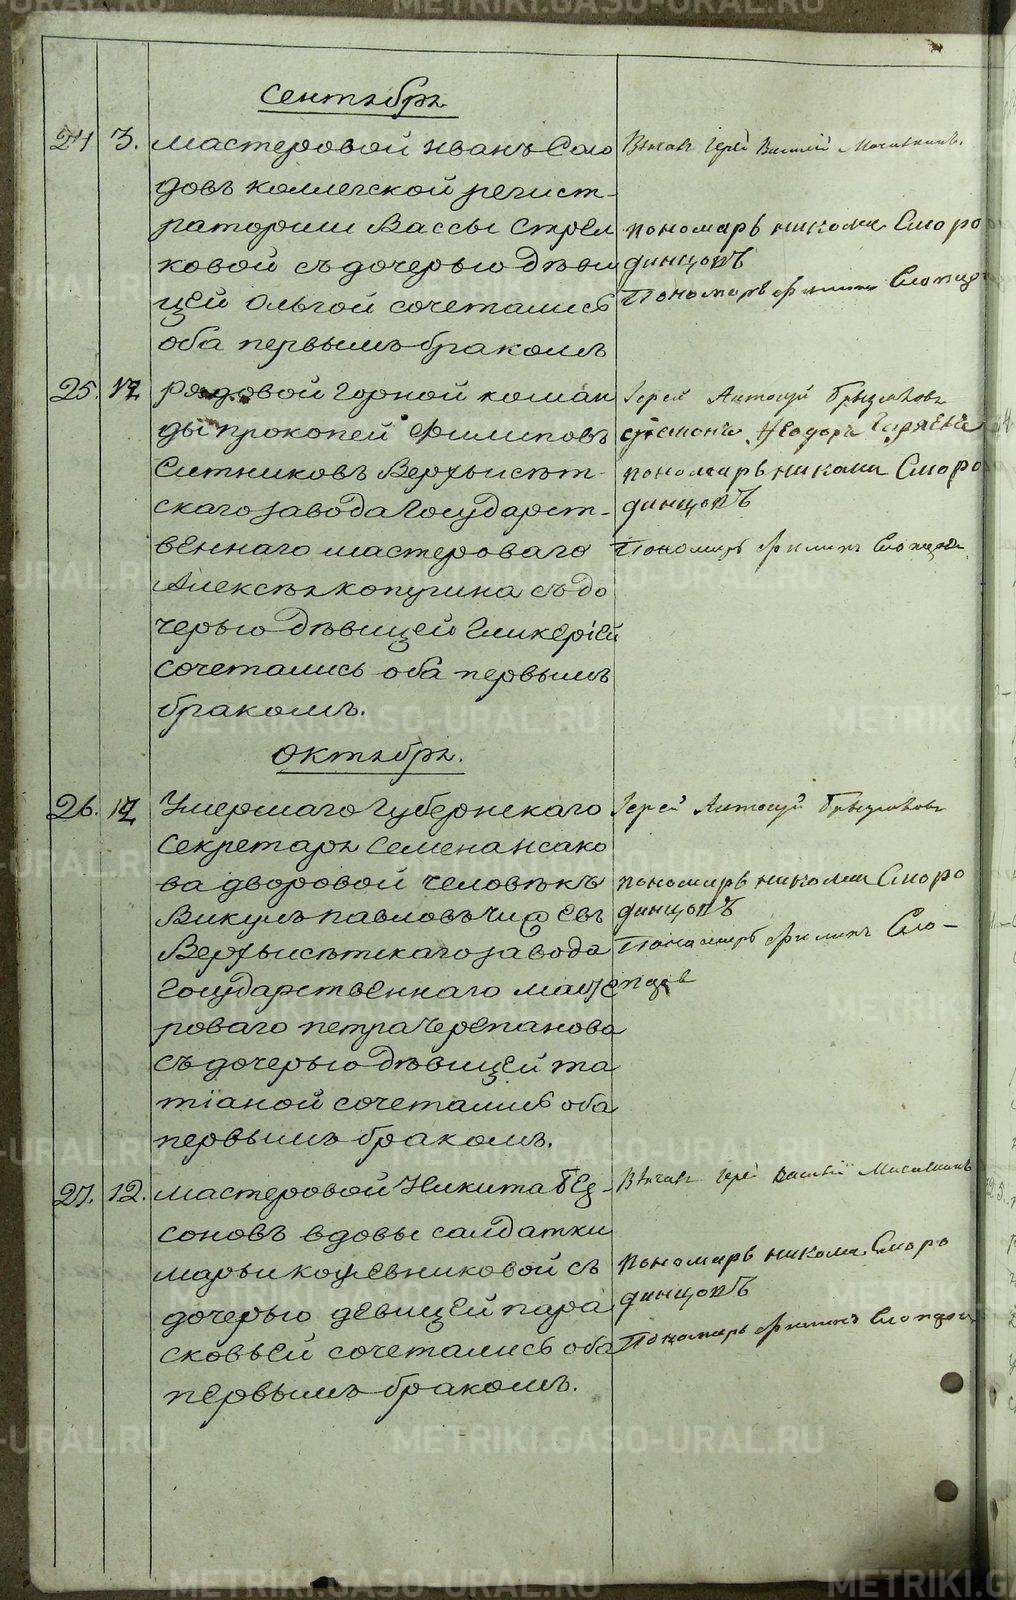 Сентябрь
24 3. мастеровой Иванъ Соло
довъ коллегской регист-
раторши Вассы Стрел
ковой съ дочерью дѣви
цей Ольгой сочетались
оба первымъ бракомъ
Вѣнчалъ Іерей Василій
пономарь николаи Сморо
динцовъ
Пономарь Филиппъ
25. рядовой горной коман
ды прокопей Филиповъ
Ситниковъ Верхъисѣт-
скаго завода Государст-
веннаго мастероваго
Алексѣя копугина съ до
черью дѣвицей Гликеріей
сочетались оба первымъ
бракомъ.
Іерей Антоній
пономарь николаи Сморо
динцовъ
Пономарь Филипъ
Октябрь.
26. Умершаго Губернскаго
Секретаря Семена исако
ва дворовой человѣкъ
Викулъ павловъ
Верхъисѣтскаго завода
Государственнаго масте
роваго петра Черепанова
съ дочерью дѣвицей та
тіаной сочетались оба
первымъ бракомъ.
Іерей Антоній
пономарь николаи Сморо
динцовъ
Пономарь Филипъ
27. 12. мастеровой Никита Без-
соновъ вдовы салдатки
марьи кошевниковой съ
дочерью девицей пара
сковьей сочетались оба
первымъ бракомъ.
Вѣнчалъ Іерей Василій
пономарь николаи Сморо
динцовъ
Пономарь Филипъ
METRIKI.GASO-URAL.RU